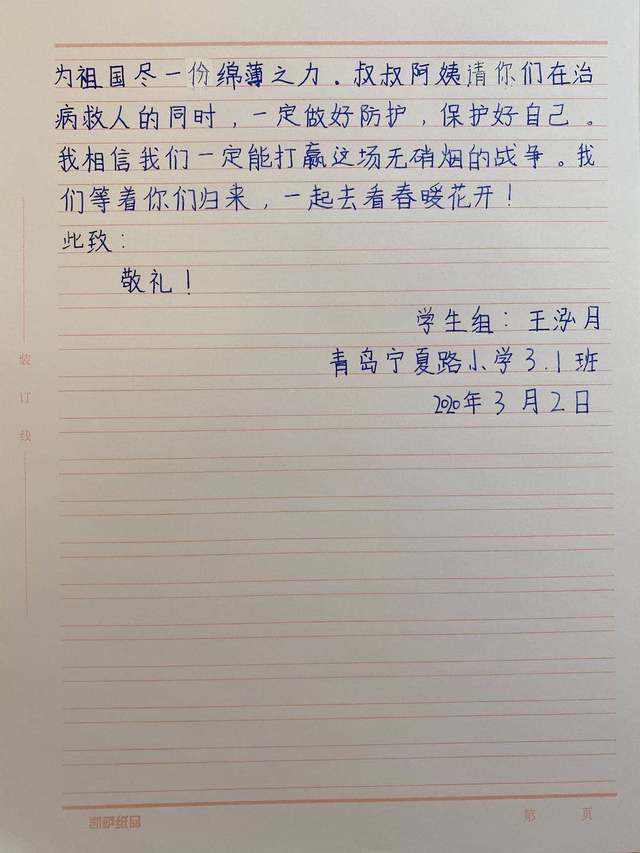 为祖国尽一份绵薄之力．叔叔阿姨请你们在治
病救人的同时，一定做好防护，保护好自己。
我相信我们一定能打赢这场无硝烟的战争。我
们等着你们归来，一起去看春暖花开！
此致：
敬礼！
学生组：王泓月
青岛宁夏路小学3.1班
2020年3月2日
装
订
线
凯萨纸品
第 页